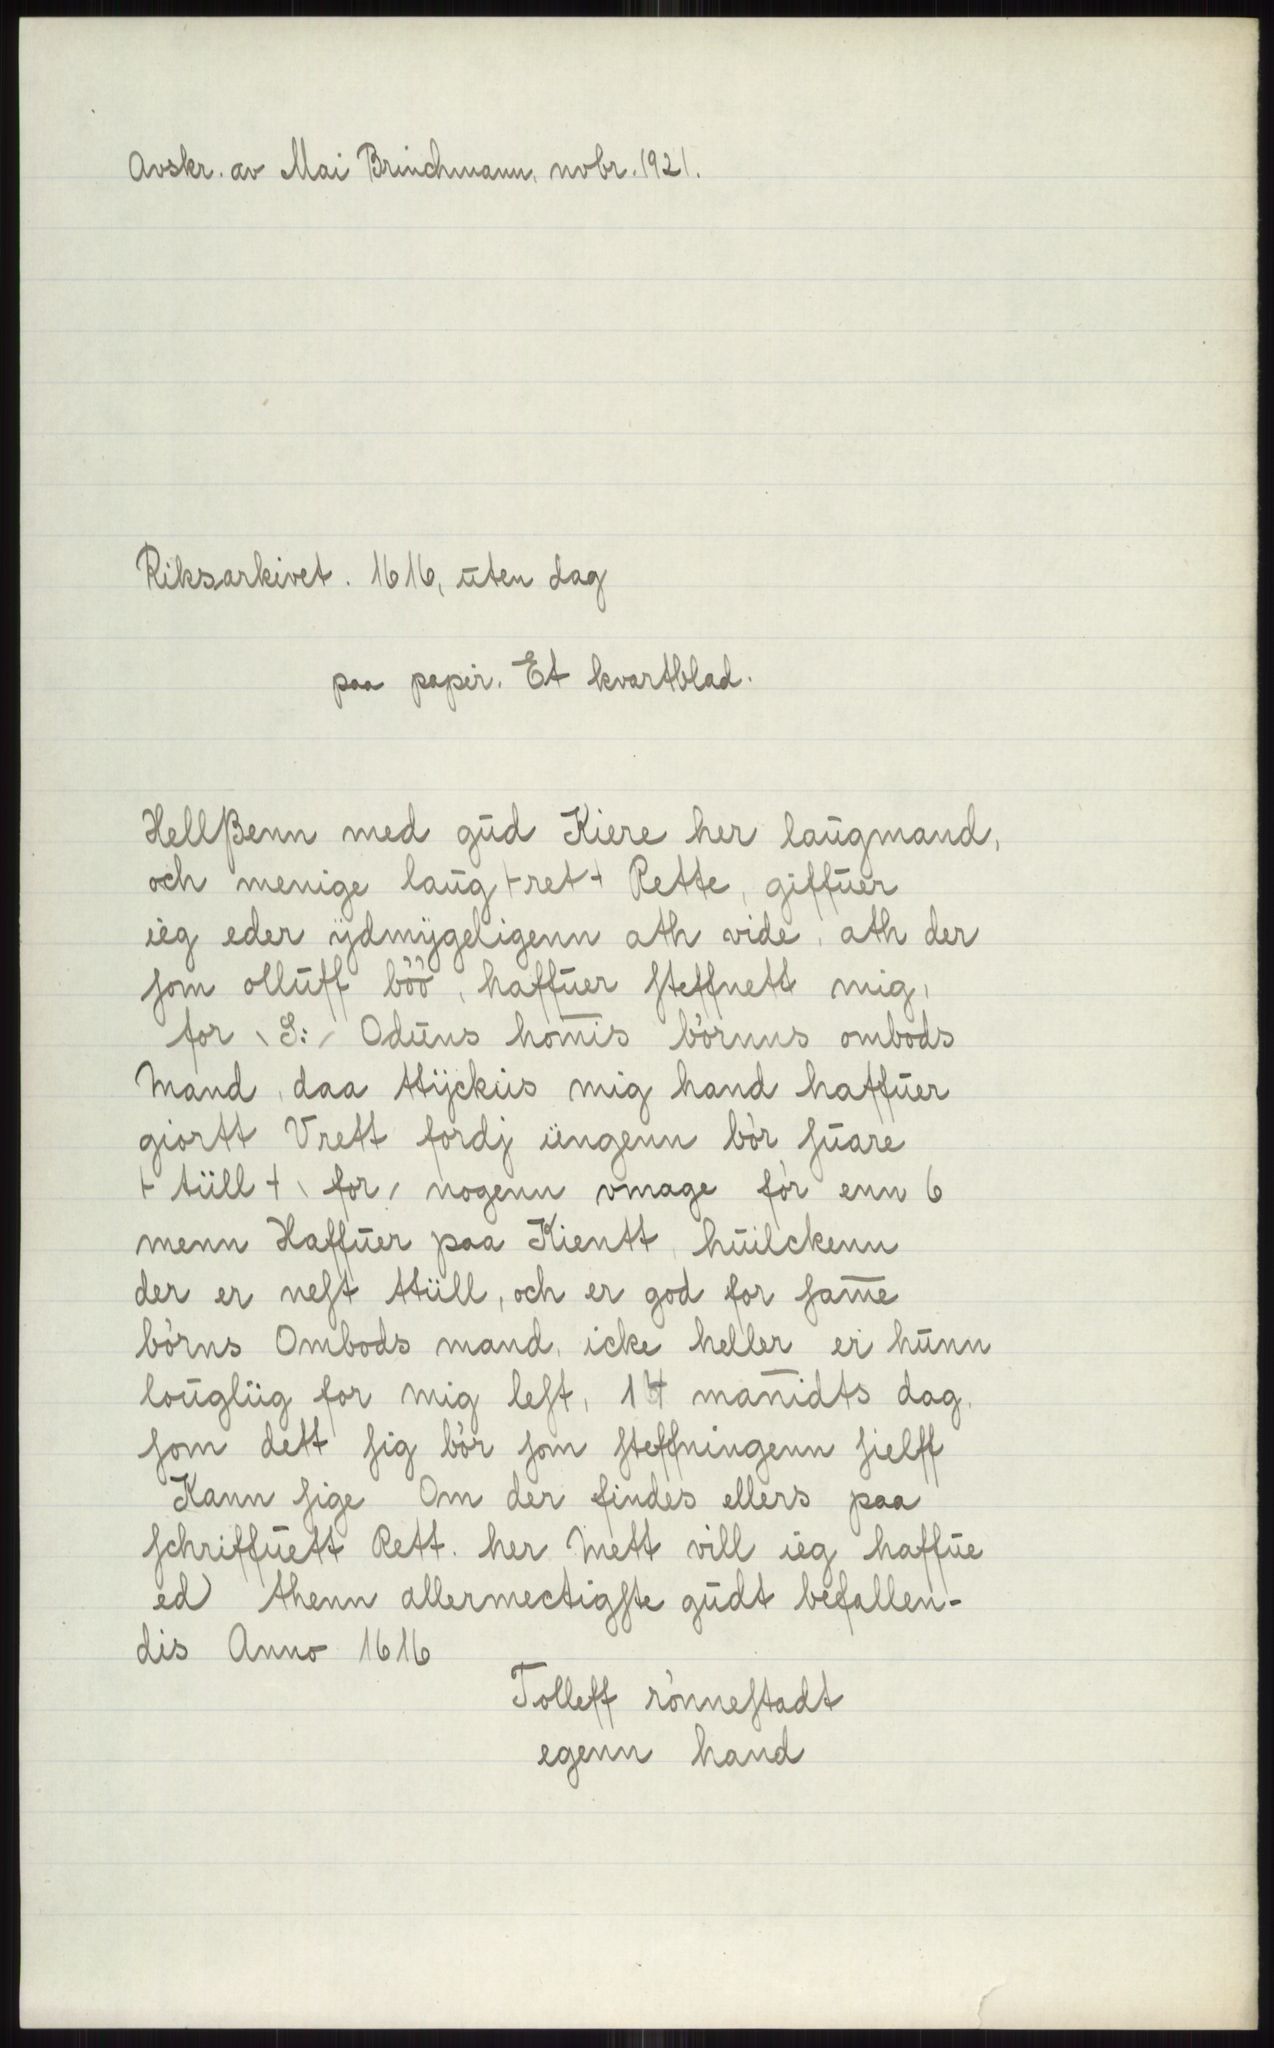 Avskr. av Mai Brinchmann, nvbr. 1921.
Riksarkivet. 1616, uten dag
paa papir. Et kvartblad.
Hellßenn med gud Kiere her laugmand,
och menige laug ⊢ret⊣ Rette, giffuer
iėg eder ÿdmÿgeligenn ath vide, ath der
ſom olluff böö, haffuer ſteffnett mig,
for \ S: / Oduns hom̅is börnns ombods
Mand, daa ttÿckiis mig hand haffuer
giortt Vrett fordj iingenn bör ſuare
⊢ tüll ⊣ \ for / nogenn vmage för enn 6
menn Haffuer paa Kientt, huilckenn
der er neſt ttüll, och er god for ſam̅e
börns Ombods mand, icke heller er hunn
louglüg for mig leſt, 14 man̅idts dag,
ſom dett ſig bör ſom ſteffningenn ſielff
Kann ſige Om der findes ellers paa
ſchriffuett Rett. her Mett vill iėg haffue
ed) thenn allermectigſte gudt befallen-
dis Anno 1616
Tolleff rönneſtadt
egenn hand